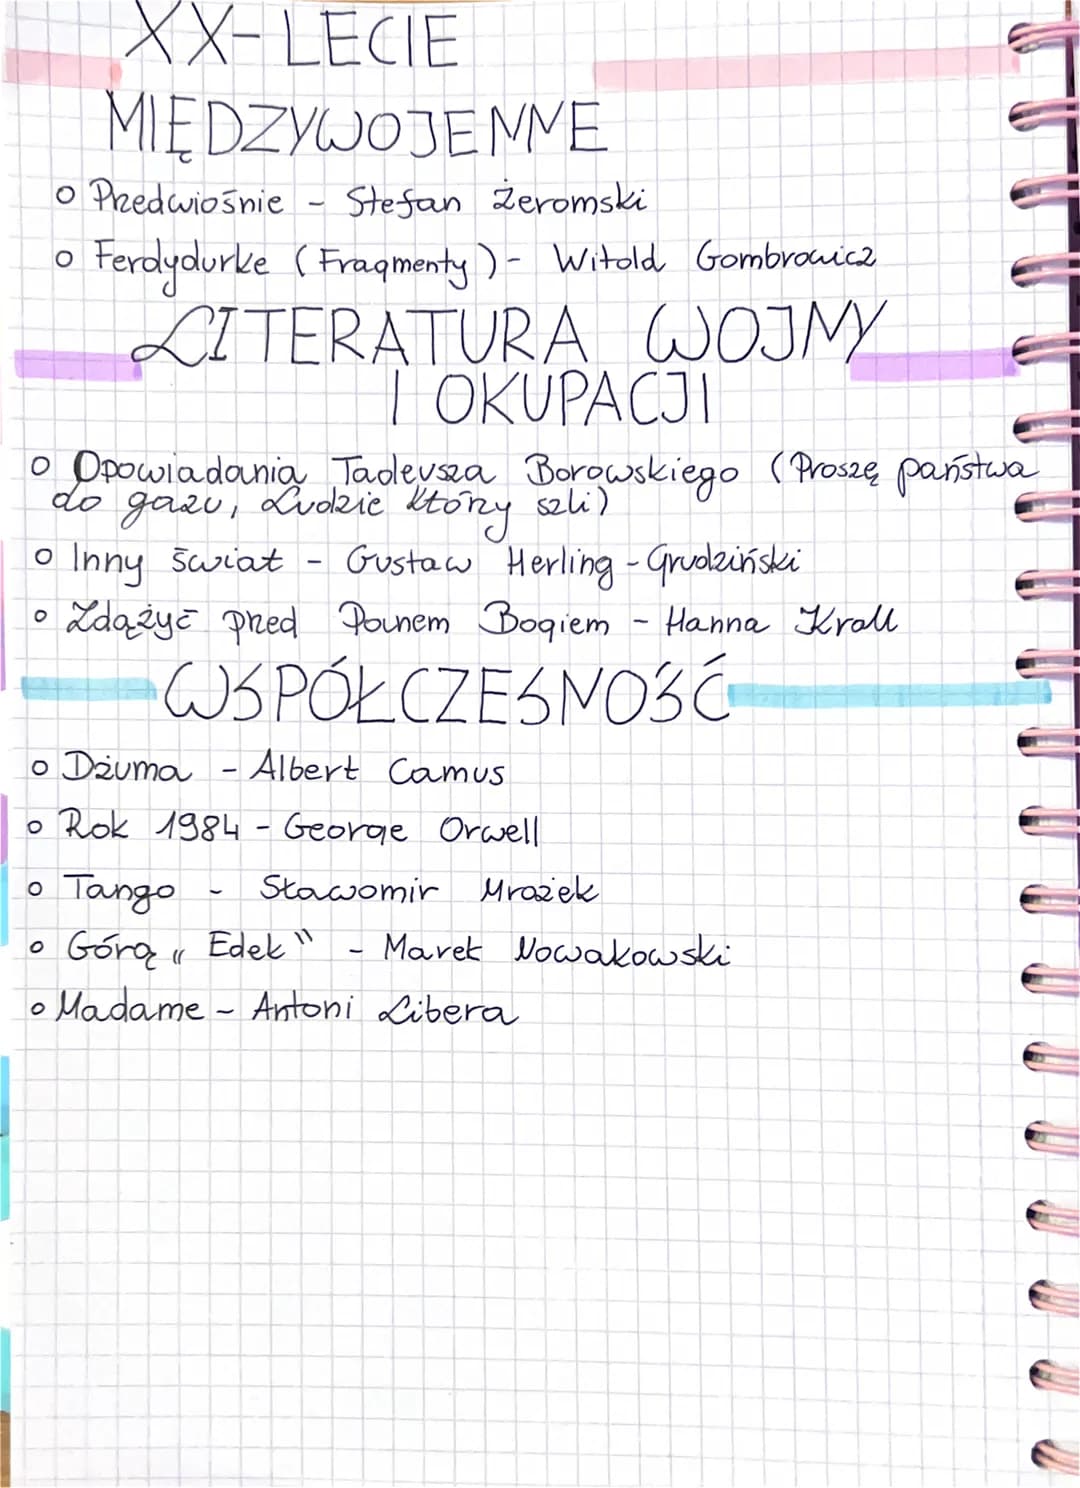 XX-LECIE
MIĘDZYWOJENNE
o Przedwiośnie - Stefan Żeromski
o Ferdydurke (Fragmenty) - Witold Gombrowicz
LITERATURA WOJNY
I OKUPACJI
o Opowiadania Tadeusza Borowskiego (Proszę państwa
do gazu, Ludzie którzy szli)
o Inny świat - Gustaw Herling-Grudziński
o Zdążyć przed Panem Bogiem - Hanna Krall
WSPÓŁCZESNOŚĆ
o Dżuma - Albert Camus
o Rok 1984 - George Orwell
o Tango - Sławomir Mrożek
o Górą „Edek" - Marek Nowakowski
o Madame - Antoni Libera